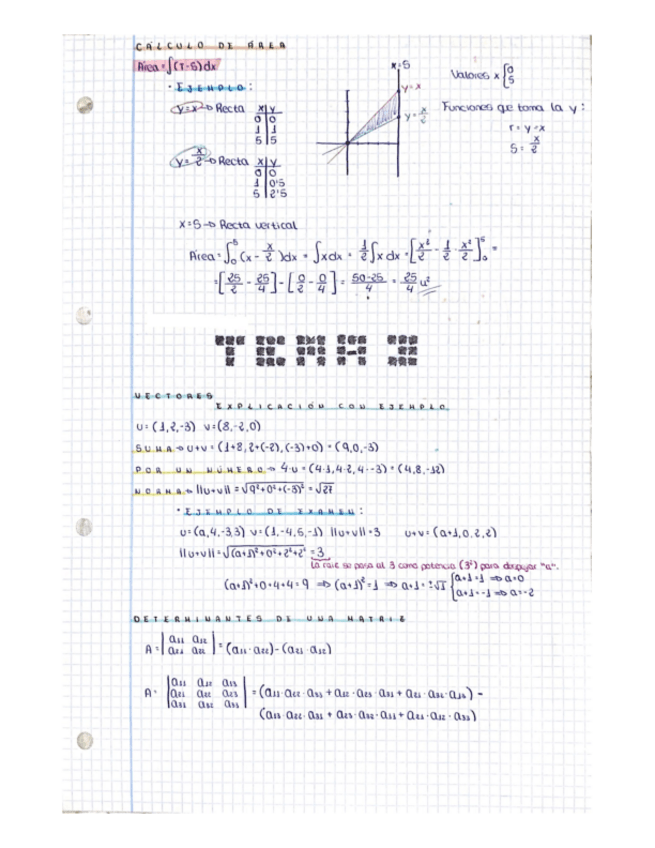 CÁLCULO DE ÁREA
Área = ∫(T-S)dx
· EJEMPLO:
y=x → Recta
x | y
0 | 0
1 | 1
5 | 5
y= x/2 → Recta
x | y
0 | 0
1 | 0'5
5 | 2'5
x=5
y=x
y= x/2
Valores x { 0 5
Funciones que toma la y:
r = y=x
S= x/2
x=5 → Recta vertical
Área = ∫₀⁵ (x - x/2)dx = ∫xdx = 1/2 ∫x dx = [x²/2 - 1/2 · x²/2]₀⁵ =
= [25/2 - 25/4] - [0/2 - 0/4] = 50-25/4 = 25/4 u²
TEMA 2
VECTORES
EXPLICACIÓN CON EJEMPLO
u= (1,2,-3) v=(8,-2,0)
SUMA → u+v = (1+8, 2+(-2), (-3)+0) = (9,0,-3)
POR UN NÚMERO → 4·u = (4·1, 4·2, 4·-3) = (4,8,-12)
NORMA → ||u+v|| = √9²+0²+(-3)² = √27
· EJEMPLO DE EXAMEN:
u=(a,4,-3,3) v=(1,-4,5,-1) ||u+v||=3 u+v=(a+1,0,2,2)
||u+v|| = √(a+1)²+0²+2²+2² = 3
La raíz se pasa al 3 como potencia (3²) para despejar "a".
(a+1)²+0+4+4=9 ⇒ (a+1)²=1 ⇒ a+1=±√1 { a+1=1 ⇒ a=0
a+1=-1 ⇒ a=-2
DETERMINANTES DE UNA MATRIZ
A= | a₁₁ a₁₂
a₂₁ a₂₂ | = (a₁₁·a₂₂)-(a₂₁·a₁₂)
A= | a₁₁ a₁₂ a₁₃
a₂₁ a₂₂ a₂₃
a₃₁ a₃₂ a₃₃ | = (a₁₁·a₂₂·a₃₃ + a₁₂·a₂₃·a₃₁ + a₂₁·a₃₂·a₁₃) -
(a₁₃·a₂₂·a₃₁ + a₂₃·a₃₂·a₁₁ + a₂₁·a₁₂·a₃₃)